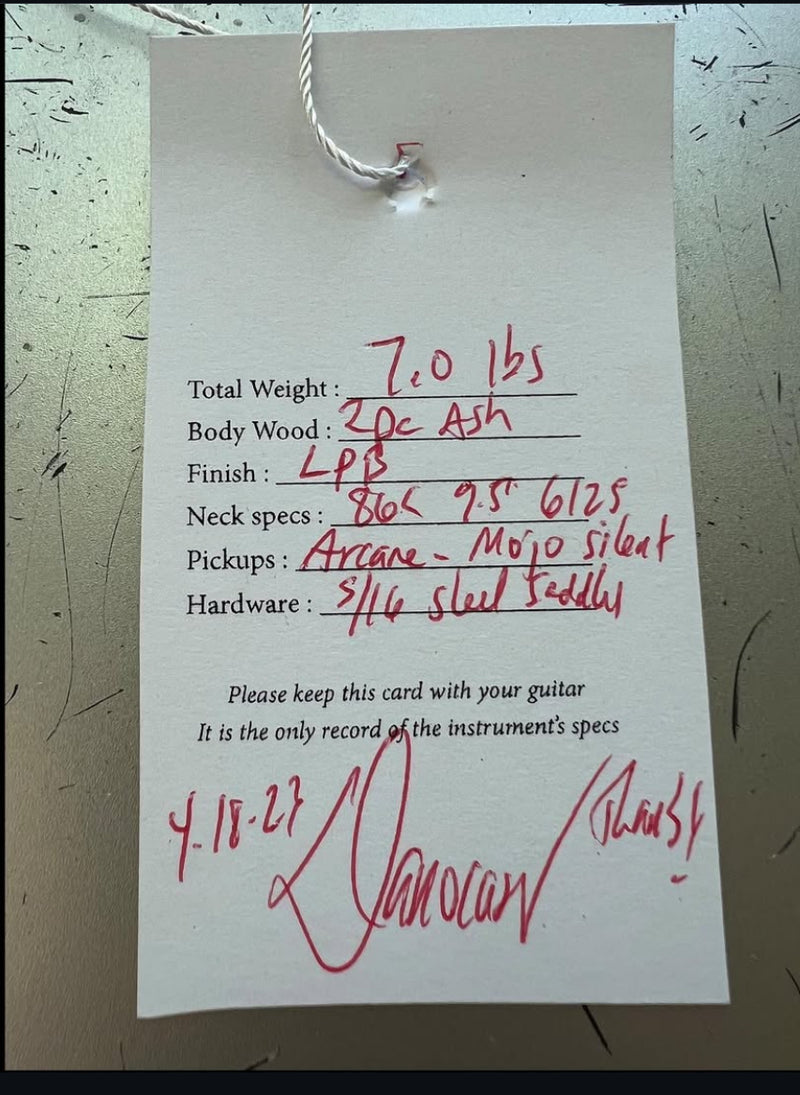 Total Weight : 7.0 lbs
Body Wood : 2pc Ash
Finish : LPB
Neck specs : 86C 9.5" 6125
Pickups : Arcane - Mojo silent
Hardware : 5/16 steel saddles
Please keep this card with your guitar
It is the only record of the instrument's specs
4-18-23
Danocaster
Thanks!